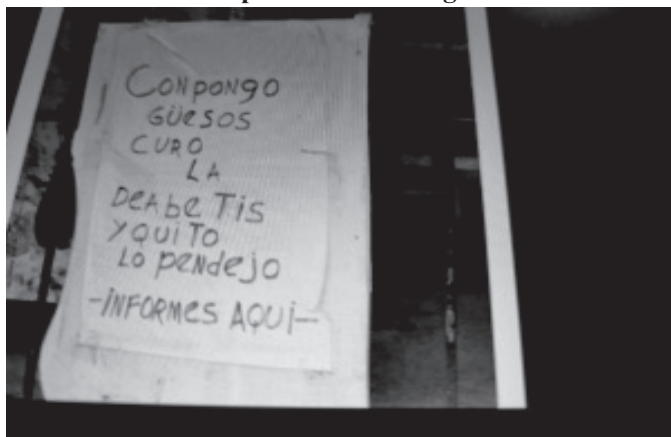 CONPONGO
GÜESOS
CURO
LA
DEABETIS
YQUITO
LO PENDEJO
-INFORMES AQUI-